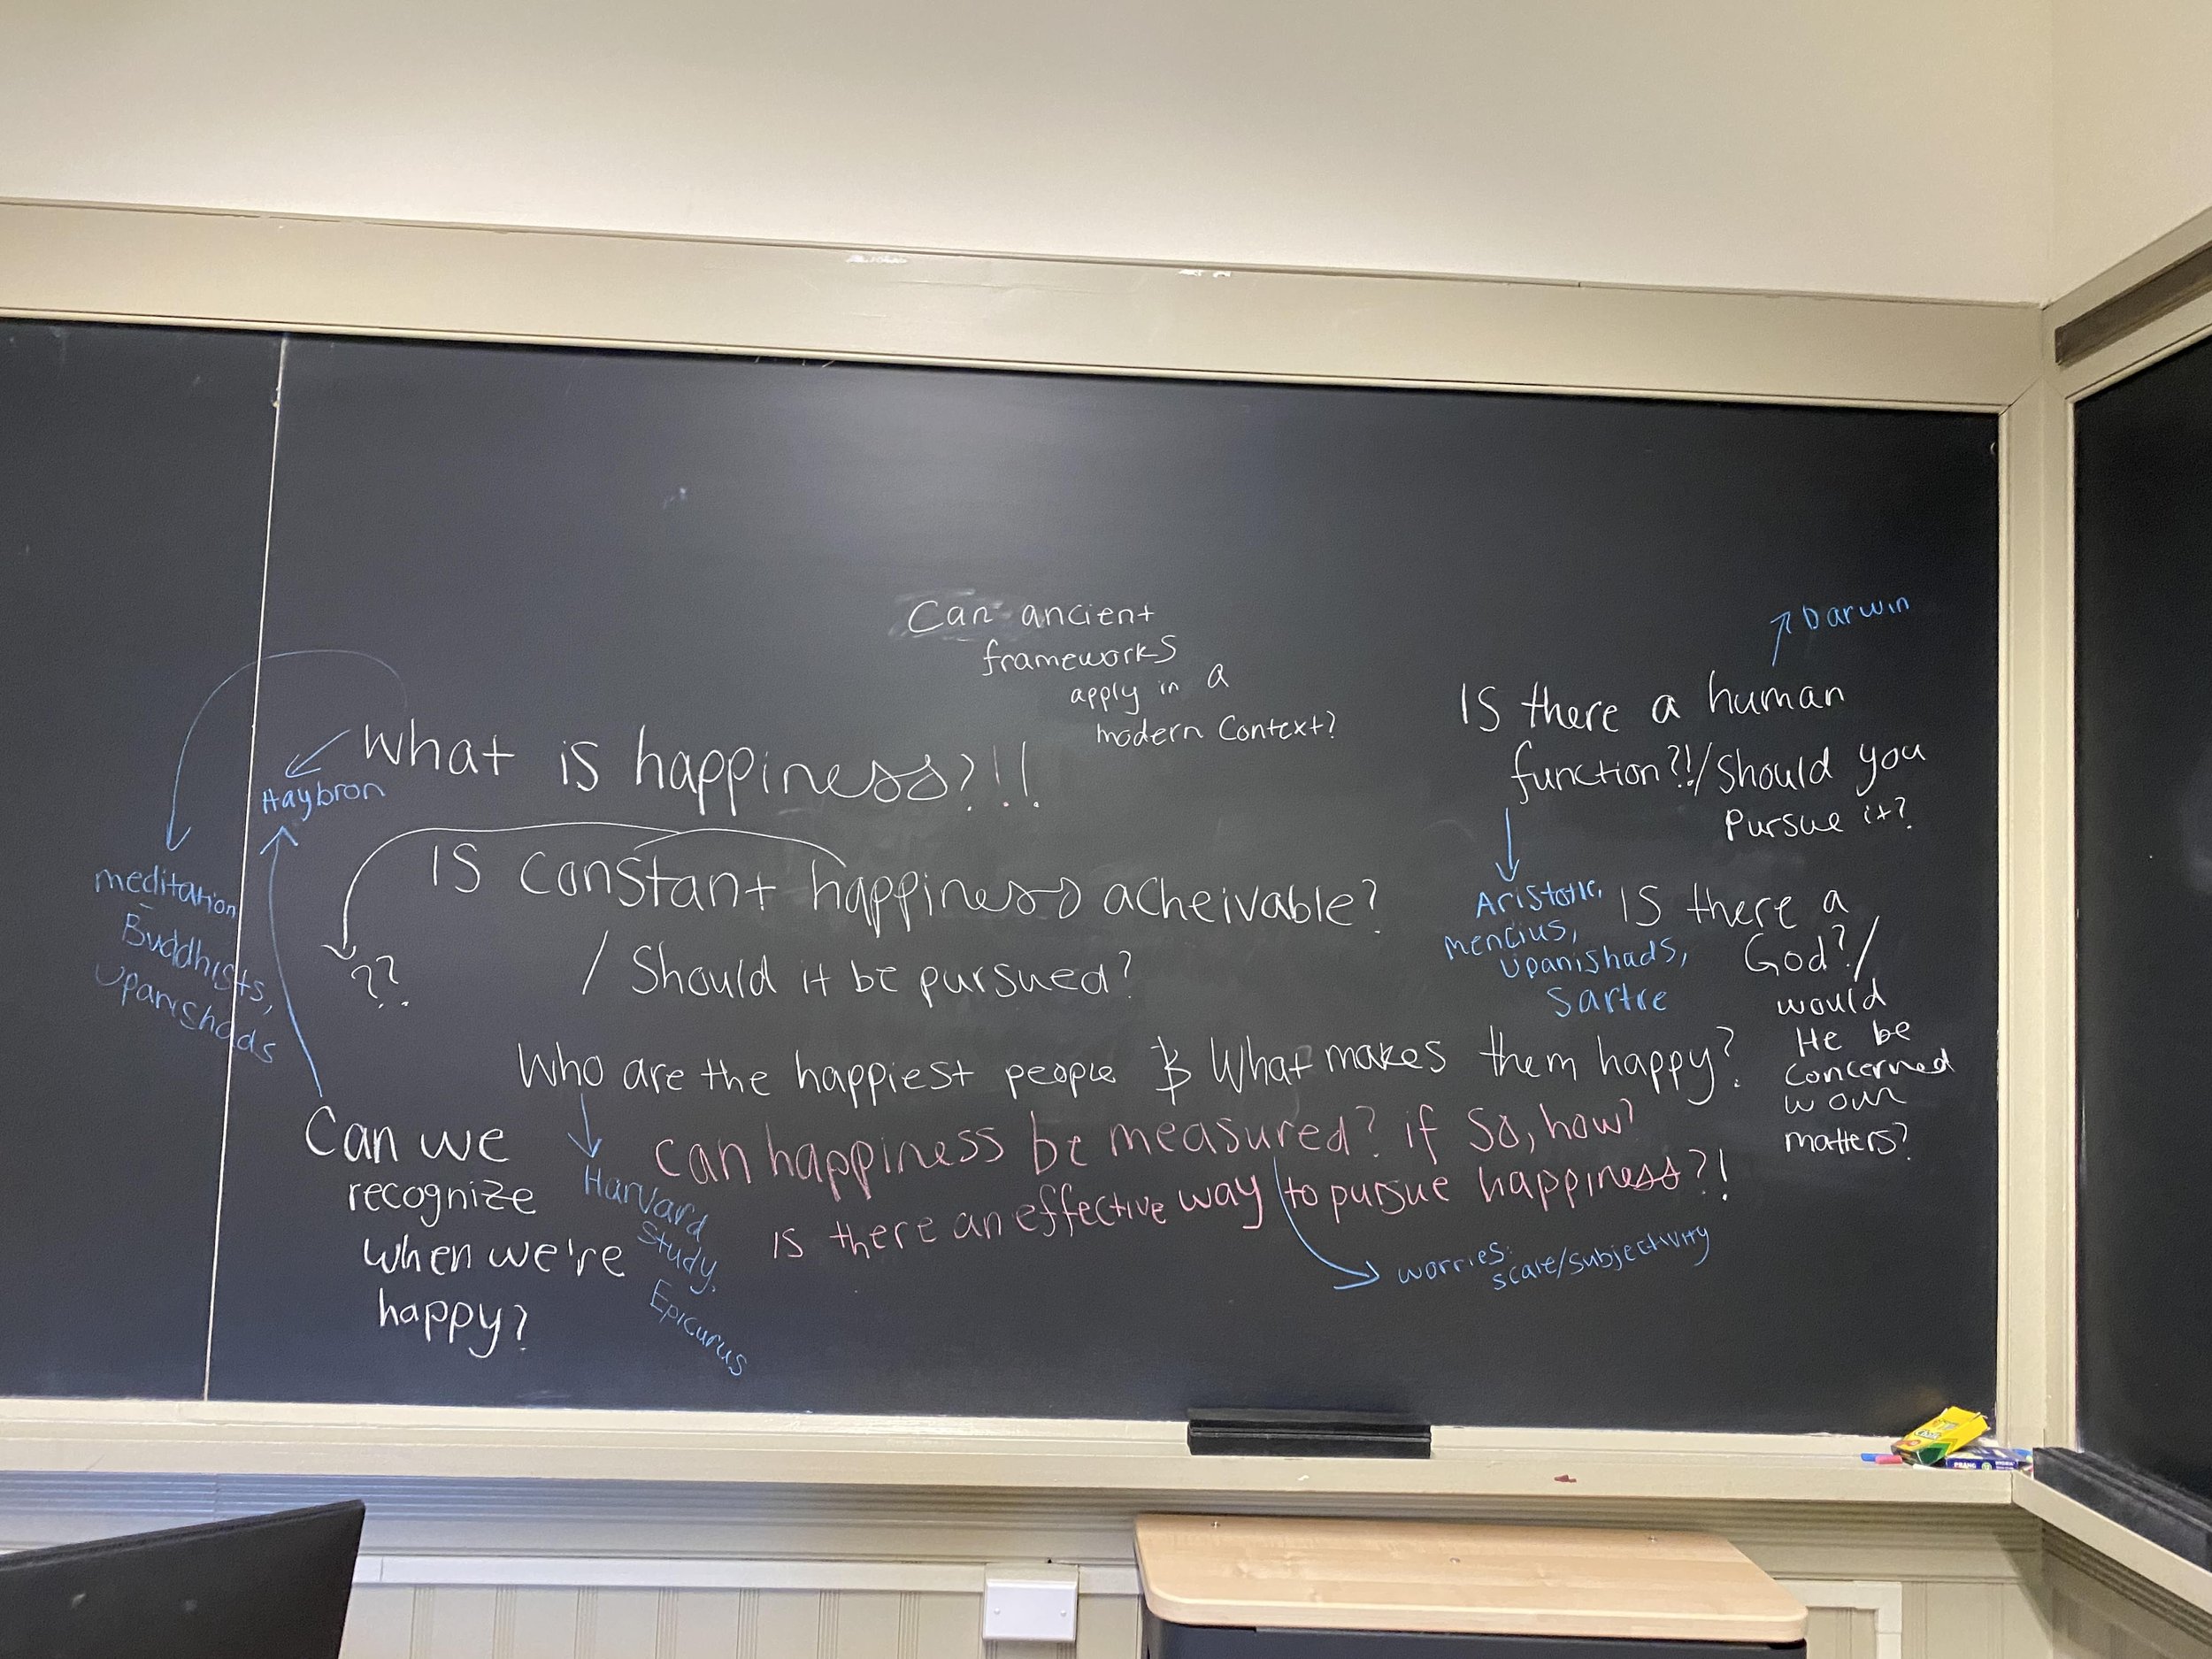 Can ancient
frameworks
apply in a
modern Context?
What is happiness?!!
Haybron
meditation
Buddhists,
Upanishads
IS constant happiness acheivable?
/ Should it be pursued?
??
Who are the happiest people & What makes them happy?
Harvard
Study,
Epicurus
Can we
recognize
when we're
happy?
can happiness be measured? if so, how?
is there an effective way to pursue happiness?!
worries:
scale/subjectivity
Darwin
IS there a human
function?!/Should you
Pursue it?
Aristotle,
mencius,
Upanishads,
Sartre
IS there a
God?/
would
He be
concerned
w our
matters?
PRANG